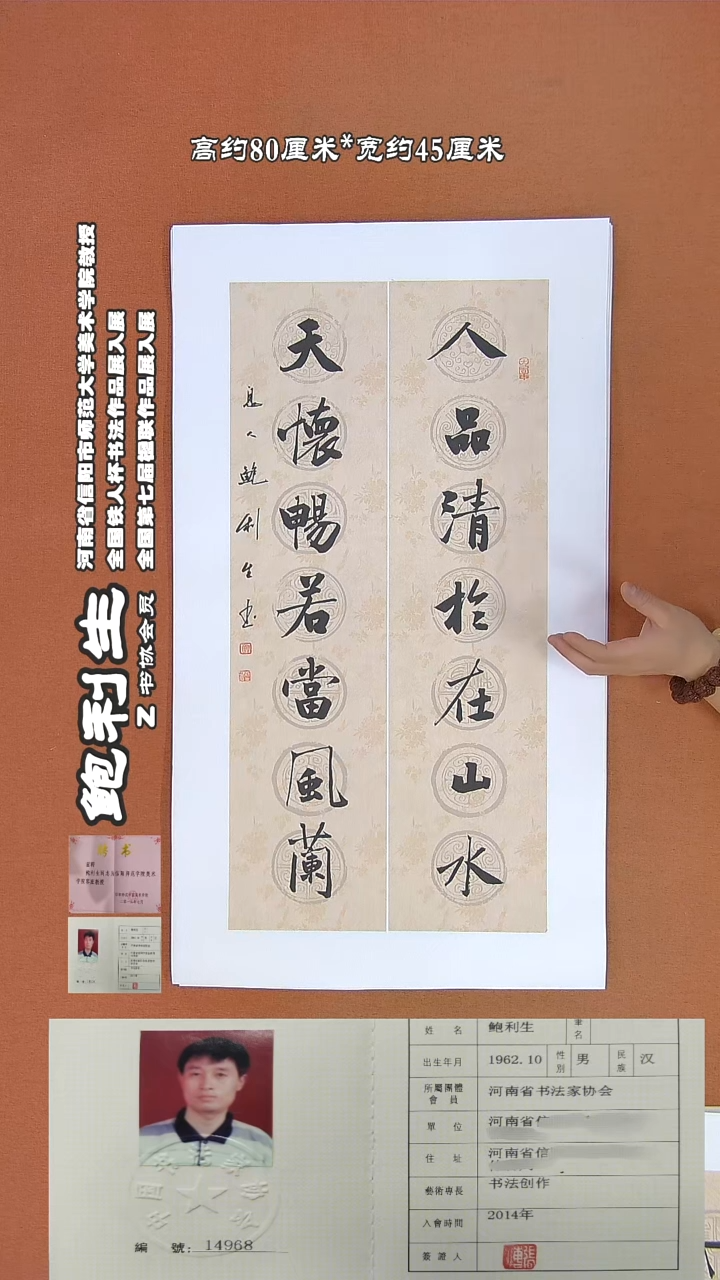 高约80厘米*宽约45厘米
河南省信阳市师范大学美术学院教授
全国铁人杯书法作品展入展
全国第七届楹联作品展入展
鲍利生
Z 书协会员
人品清於在山水
天懷暢若當風蘭
息人鲍利生书
聘书
姓 名 鲍利生 筆名
出生年月 1962.10 性別 男 民族 汉
所屬團體會員 河南省书法家协会
單 位 河南省信
住 址 河南省信
藝術專長 书法创作
入會時間 2014年
簽證人
編 號: 14968